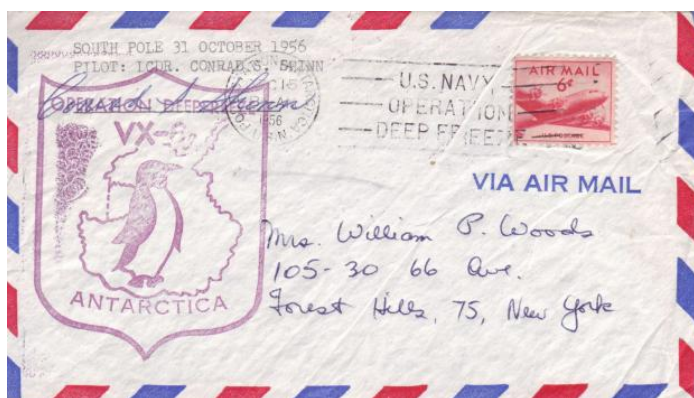 SOUTH POLE 31 OCTOBER 1956
PILOT: LCDR. CONRAD S. SHINN
OPERATION DEEP
VX-6
ANTARCTICA
1956
U.S. NAVY
OPERATION
DEEP FREEZE
AIR MAIL
6¢
U.S. POSTAGE
VIA AIR MAIL
Mrs. William P. Woods
105-30 66 Ave.
Forest Hills, 75, New York